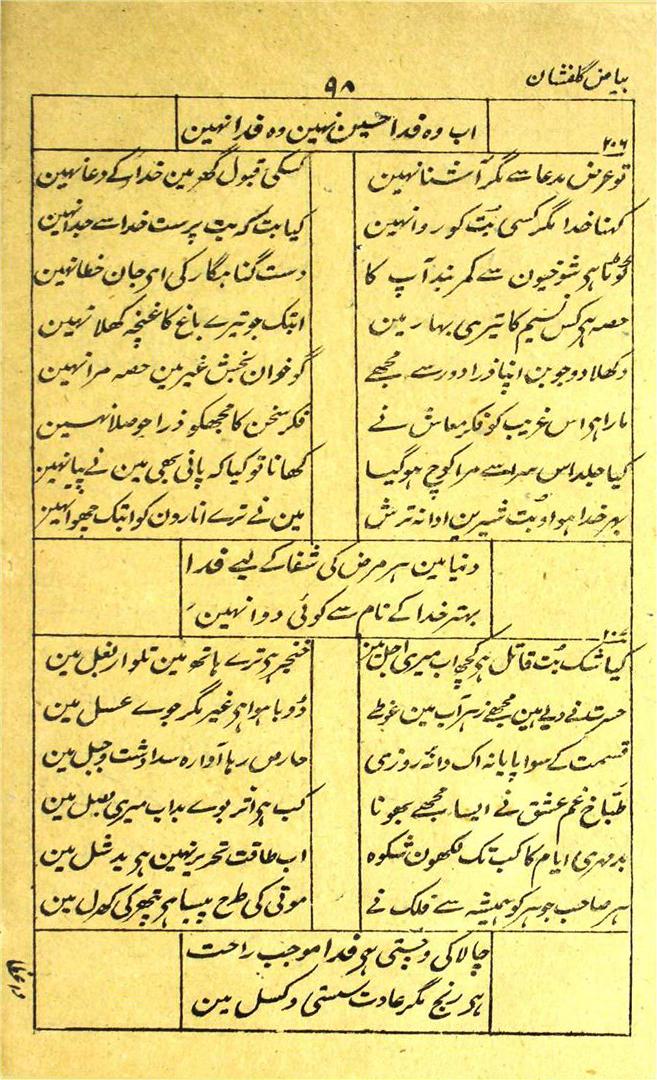 بیاض گلفشان
۹۸
اب وہ فدا حسین نہین وہ فدا نہین
۲۰۶
تو عرض مدعا سے مگر آشنا نہین کسکی قبول گھر مین خدا کے دعا نہین
کہنا خدا مگر کسی بُت کو روا نہین کیا بت کہ بت پرست خدا سے جدا نہین
ٹوٹا ہی شوخیون سے کمر بند آپ کا دست گناہگار کی ای جان خطا نہین
حصہ ہی کس نسیم کا تیری بہار مین ابتک جو تیرے باغ کا غنچہ کھلا نہین
دکھلا دو جوبن اپنا ذرا دور سے مجھے گو خوان بخش غیر مین حصہ مرا نہین
مارا ہی اس غریب کو فکر معاش نے فکر سخن کا مجھکو ذرا حوصلا نہین
کیا جلد اس سرا سے مرا کوچ ہو گیا کھانا تو کیا کہ پانی بھی مین نے پیا نہین
بہر خدا ہو او بُت شیرین ادا نہ ترش مین نے ترے انارون کو ابتک چھوا نہین
دنیا مین ہر مرض کی شفا کے لیے فدا
بہتر خدا کے نام سے کوئی دوا نہین
۲۰۷
کیا شک بُت قاتل ہی کچھ اب میری اجل مین خنجر ہی ترے ہاتھ مین تلوار بغل مین
حسرت نے دیے ہین مجھے زہر آب مین غوطے ڈوبا ہوا ہی غیر مگر جوے عسل مین
قسمت کے سوا پایا نہ اک دانۂ روزی حارص رہا آوارہ سدا دشت و جبل مین
طبّاخ غم عشق نے ایسا مجھے بھونا کب ہی اثر بوے بد اب میری بغل مین
بد مہریِ ایام کا کب تک لکھون شکوہ اب طاقت تحریر نہین ہی ید شل مین
ہر صاحب جوہر کو ہمیشہ سے فلک نے موتی کی طرح پیسا ہی کھرل مین
چالاکی و چستی ہی فدا موجب راحت
ہی رنج مگر عادت سستی و کسل مین